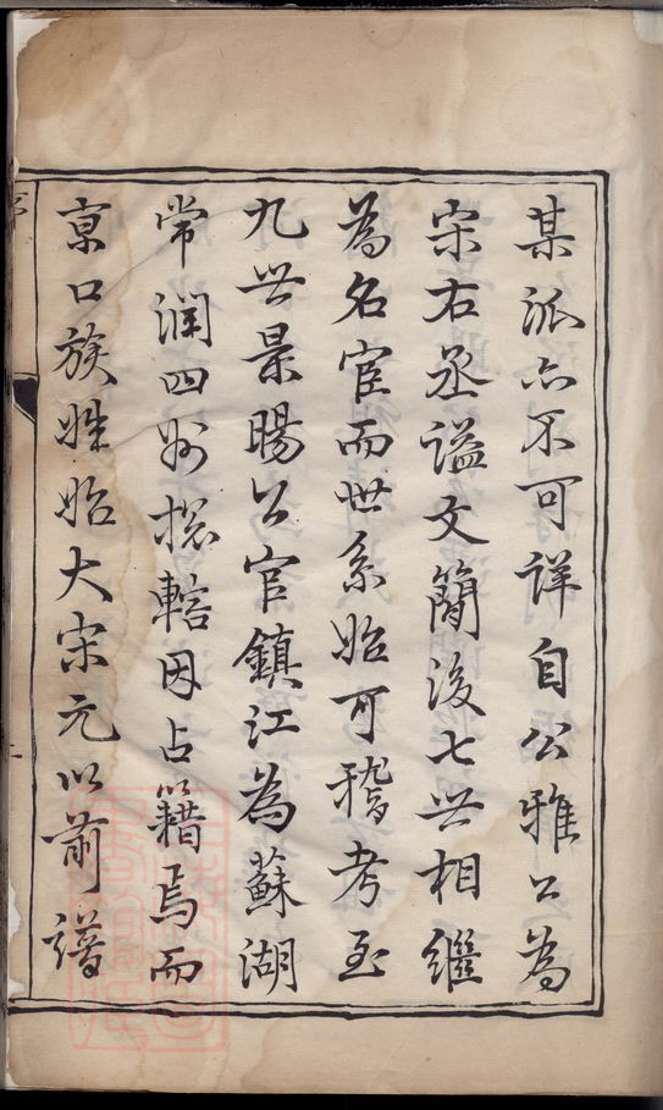 某派亦不可詳自公雅公為
宋右丞諡文簡後七世相繼
為名宦而世系始可稽考至
九世景暘公官鎮江為蘇湖
常潤四州揔轄因占籍焉而
京口族姓始大宋元以前譜